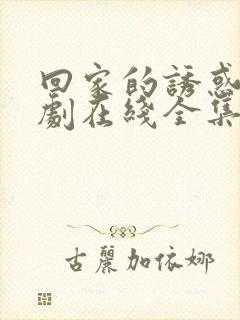 回家的誘惑
劇在綫全集
古麗加依娜